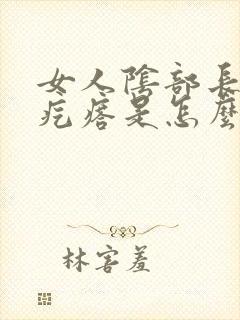 女人陰部長
疙瘩是怎麼
林害羞